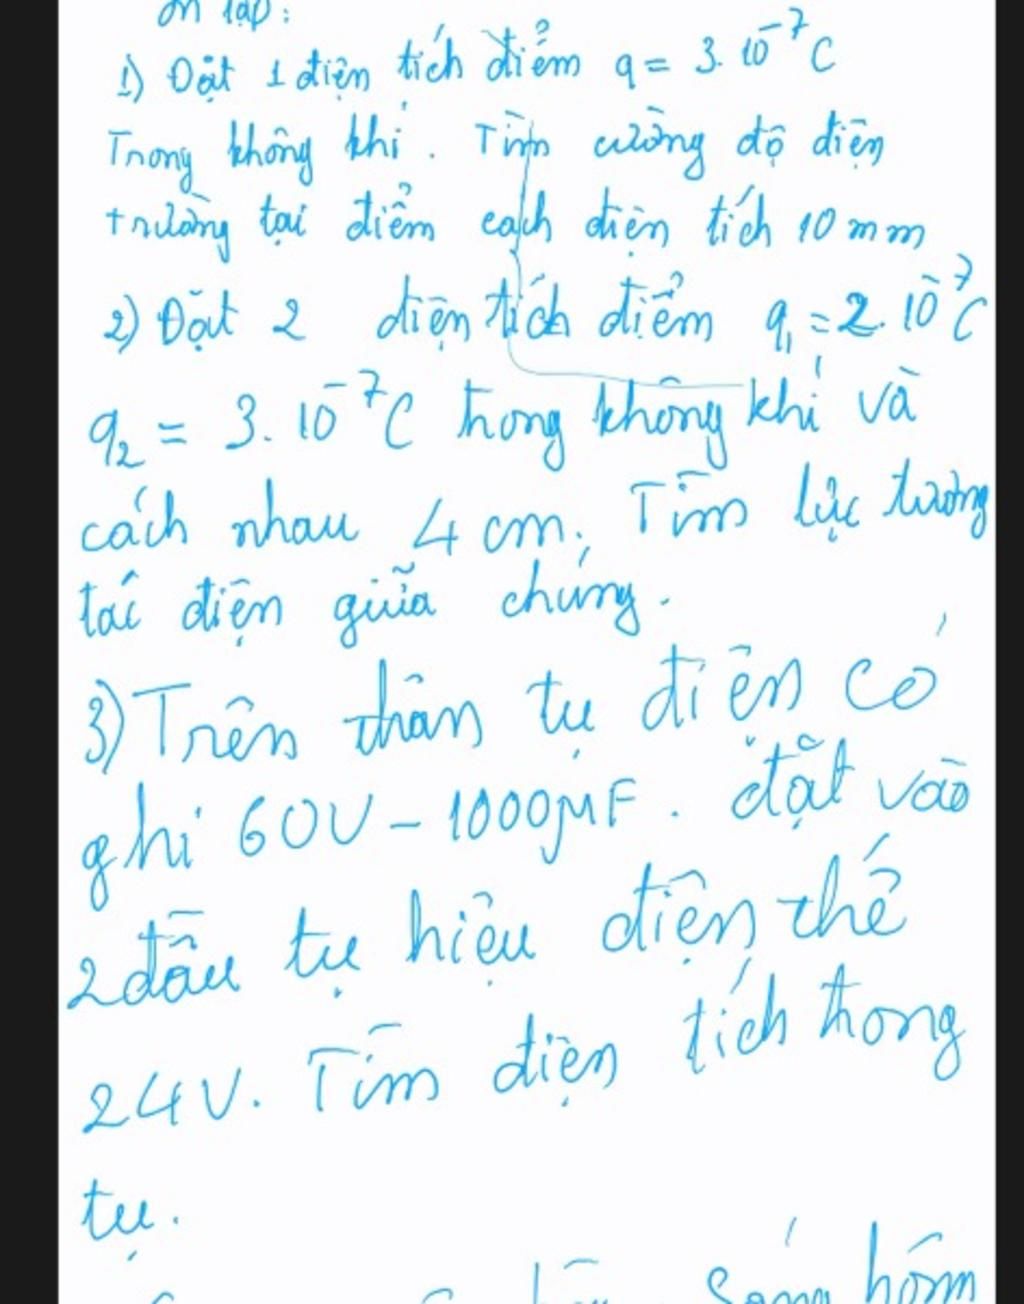 ôn tập:
1) Đặt 1 điện tích điểm q = 3.10⁻⁷C
Trong không khí. Tìm cường độ điện
trường tại điểm cách điện tích 10mm
2) Đặt 2 điện tích điểm q₁ = 2.10⁻⁷C
q₂ = 3.10⁻⁷C trong không khí và
cách nhau 4 cm. Tìm lực tương
tác điện giữa chúng.
3) Trên thân tụ điện có
ghi 60V - 1000μF. đặt vào
2 đầu tụ hiệu điện thế
24V. Tìm điện tích trong
tụ.
hóm